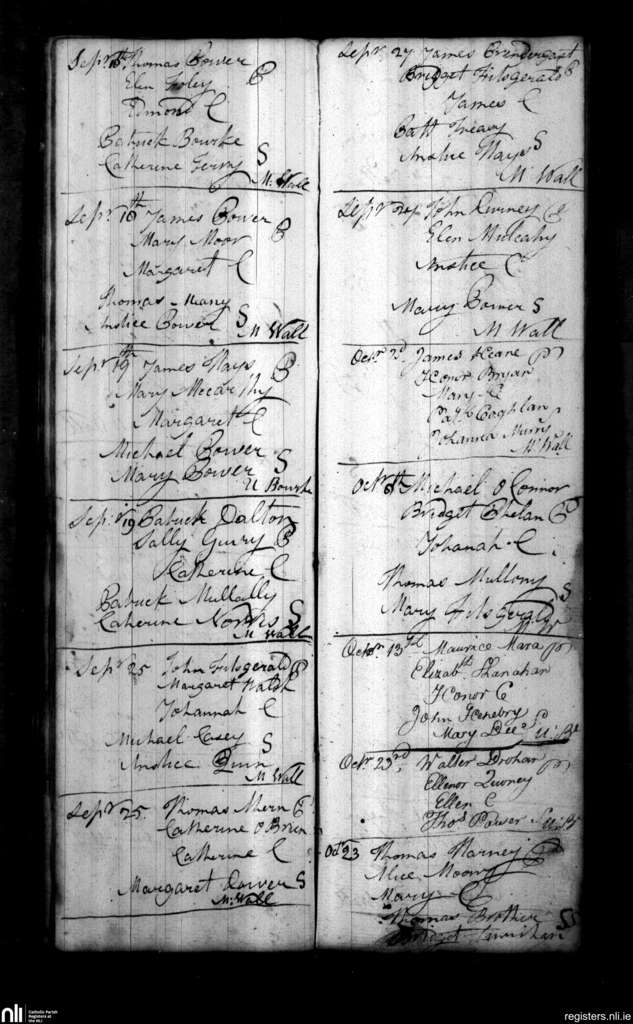 Sepr 18th Thomas Bower
Elen Foley P
Edmond C
Patrick Bourke
Catherine S
M. Wall
Sepr 18th James Bower
Mary Moor P
Margaret C
Thomas Many
Anstice Bower S
M Wall
Sepr 19th James Hays P
Mary Mccarthy
Margaret C
Michael Bower
Mary Bower S
U Bourke
Sepr 19 Patrick Dalton
Sally Guiry P
Katherine C
Patrick Mullally
Catherine Norris S
M Wall
Sepr 25 John Fitsgerald P
Margaret Walsh
Johannah C
Michael Casey S
Anstice Quin
M Wall
Sepr 25 Thomas Ahern P
Catherine O Brien
Catherine C
Margaret Power S
M. Wall
Sepr 27 James Prendergast
Bridget Fitsgerald P
James C
Patt Treacy
Anstice Hays S
M Wall
Sepr John P
Elen Mulcahy
Anstice C
Mary Bower S
M Wall
Octr 2d James Keane P
Honor Bryan
Mary C
Patk Coghlan
Johanna Murry
M. Wall
Octr 6th Michael O Connor
Bridget Phelan P
Johanah C
Thomas Mullony S
Mary Fitsgerald
Octor 13th Maurice Mara P
Elizabth Shanahan
Honor C
John Henebry
Mary Dee S
Octr 23rd Walter Drohan P
Ellenor
Ellen C
Thos Power
Octr 23 Thomas Harney P
Alice Moony
Mary C
Thomas Brother S
Bridget
nli
Catholic Parish
Registers at
the NLI
registers.nli.ie